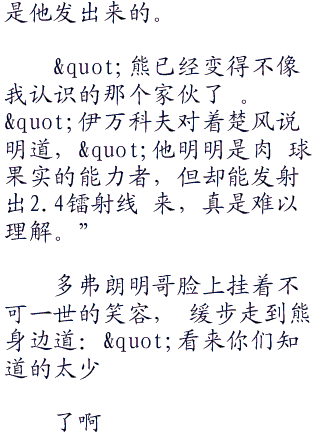 是他发出来的。
&quot;熊已经变得不像
我认识的那个家伙了 。
&quot;伊万科夫对着楚风说
明道，&quot;他明明是肉 球
果实的能力者，但却能发射
出2.4镭射线 来，真是难以
理解。”
多弗朗明哥脸上挂着不
可一世的笑容， 缓步走到熊
身边道：&quot;看来你们知
道的太少
了啊